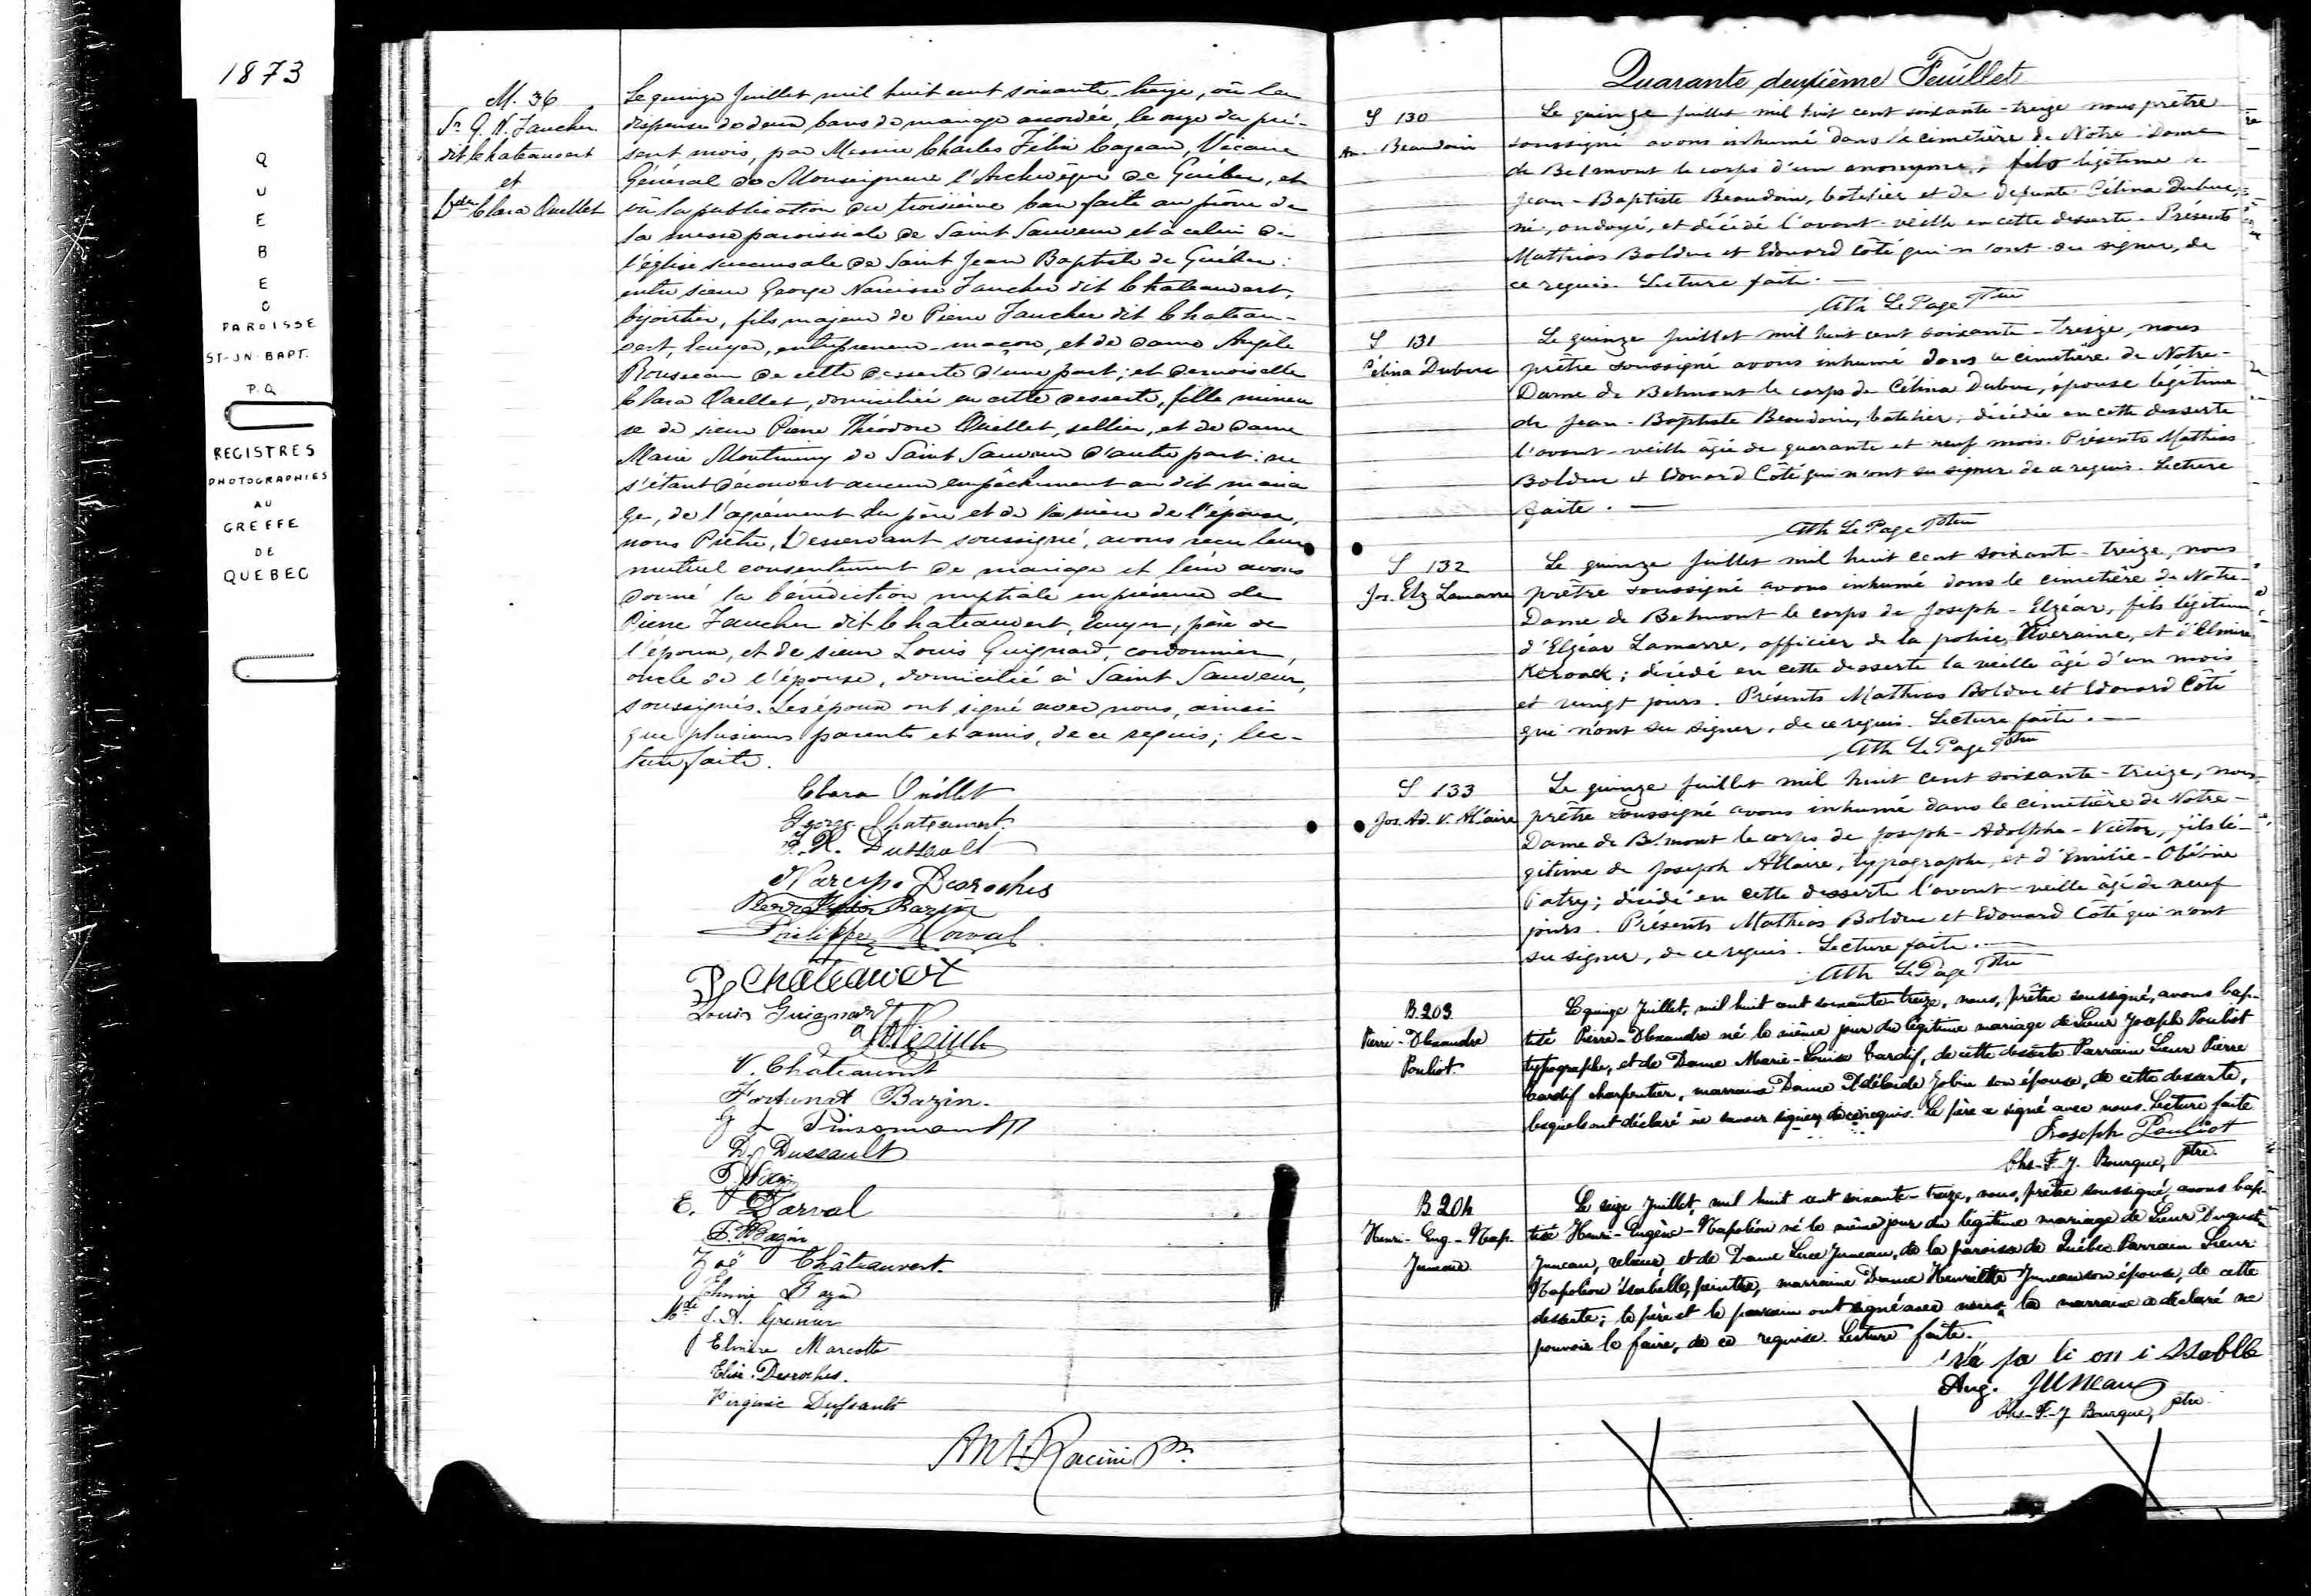 1873
QUEBEC
PAROISSE
ST-JN-BAPT.
P.Q
REGISTRES
PHOTOGRAPHIES
AU
GREFFE
DE
QUEBEC
M. 36
Sr G. N. Faucher
dit Chateauvert
et
Dlle Clara Ouellet
Le quinze Juillet mil huit cent soixante-treize, vu la
dispense de deux bans de mariage accordée, le onze du pré-
sent mois, par Messire Charles Félix Cazeau, Vicaire
Général de Monseigneur l'Archevêque de Québec, et
vu la publication du troisième ban faite au prône de
la messe paroissiale de Saint Sauveur et à celui de
l'église succursale de Saint Jean Baptiste de Québec:
entre sieur George Narcisse Faucher dit Chateauvert,
bijoutier, fils majeur de Pierre Faucher dit Chateau-
vert, Ecuyer, entrepreneur-maçon, et de dame Angèle
Rousseau de cette desserte d'une part; et demoiselle
Clara Ouellet, domiciliée en cette desserte, fille mineu
re de sieur Pierre Théodore Ouellet, sellier, et de dame
Marie Montminy de Saint Sauveur d'autre part: ne
s'étant découvert aucun empêchement au dit maria
ge, de l'agrément du père et de la mère de l'épouse,
nous Prêtre, Desservant soussigné, avons reçu leur
mutuel consentement de mariage et leur avons
donné la bénédiction nuptiale en présence de
Pierre Faucher dit Chateauvert, Ecuyer, père de
l'époux, et de sieur Louis Guignard, cordonnier,
oncle de l'épouse, domicilié à Saint Sauveur,
soussignés. Les époux ont signé avec nous, ainsi
que plusieurs parents et amis, de ce requis; lec-
ture faite.
Clara Ouellet
George Chateauvert
Dussault
Narcisse Desroches
Bazin
Philippe Dorval
P Chateauvert
Louis Guignard
V. Châteauvert
Fortunat Bazin.
Pinsonnault
D. Dussault
E. Dorval
Bazin
Zoë Châteauvert.
J. A. Grenier
Elmire Marcotte
Elise Desroches.
Virginie Dussault
Ant. Racine Ptre
Quarante deuxième Feuillet
S 130
An. Beaudoin
Le quinze Juillet mil huit cent soixante-treize nous prêtre
soussigné avons inhumé dans le cimetière de Notre-Dame
de Belmont le corps d'un anonyme, fils légitime de
Jean-Baptiste Beaudoin, batelier et de défunte Célina Dubuc,
né, ondoyé, et décédé l'avant-veille en cette desserte. Présents
Mathias Bolduc et Edouard Côté qui n'ont su signer, de
ce requis. Lecture faite.
Ath Le Page Ptre
S 131
Célina Dubuc
Le quinze Juillet mil huit cent soixante-treize, nous
prêtre soussigné avons inhumé dans le cimetière de Notre-
Dame de Belmont le corps de Célina Dubuc, épouse légitime
de Jean-Baptiste Beaudoin, batelier, décédée en cette desserte
l'avant-veille âgée de quarante et neuf mois. Présents Mathias
Bolduc et Edouard Côté qui n'ont su signer de ce requis. Lecture
faite.
Ath Le Page Ptre
S 132
Jos. Elz Lamarre
Le quinze Juillet mil huit cent soixante-treize, nous
prêtre soussigné avons inhumé dans le cimetière de Notre-
Dame de Belmont le corps de Joseph-Elzéar, fils légitime
d'Elzéar Lamarre, officier de la police Riveraine, et d'Elmire
Kerouck; décédé en cette desserte la veille âgé d'un mois
et vingt jours. Présents Mathias Bolduc et Edouard Côté
qui n'ont su signer, de ce requis. Lecture faite.
Ath Le Page Ptre
S 133
Jos. Ad. V. Allaire
Le quinze Juillet mil huit cent soixante-treize, nous
prêtre soussigné avons inhumé dans le cimetière de Notre-
Dame de Belmont le corps de Joseph-Adolphe-Victor, fils lé-
gitime de Joseph Allaire, typographe, et d'Emilie-Obéline
Patry; décédé en cette desserte l'avant-veille âgé de neuf
jours. Présents Mathias Bolduc et Edouard Côté qui n'ont
su signer, de ce requis. Lecture faite.
Ath Le Page Ptre
B. 203
Pierre-Alexandre
Pouliot.
Le quinze Juillet, mil huit cent soixante-treize, nous, prêtre soussigné, avons bap-
tisé Pierre-Alexandre né le même jour du légitime mariage de Sieur Joseph Pouliot
typographe, et de Dame Marie-Louise Tardif, de cette desserte. Parrain Sieur Pierre
Tardif charpentier, marraine Dame Adélaïde Jobin son épouse, de cette desserte,
lesquels ont déclaré ne savoir signer, de ce requis. Le père a signé avec nous. Lecture faite
Joseph Pouliot
Chs-F-J. Bourque, ptre.
B 204
Henri-Eug-Nap.
Juneau
Le seize Juillet, mil huit cent soixante-treize, nous, prêtre soussigné, avons bap-
tisé Henri-Eugène-Napoléon né le même jour du légitime mariage de Sieur Auguste
Juneau, relieur, et de Dame Luce Juneau, de la paroisse de Québec. Parrain Sieur
Napoléon Isabelle, peintre, marraine Dame Henriette Juneau son épouse, de cette
desserte; le père et le parrain ont signé avec nous, la marraine a déclaré ne
pouvoir le faire, de ce requise. Lecture faite.
Na po li on i ssablle
Aug. Juneau
Chs-F-J Bourque, ptre.